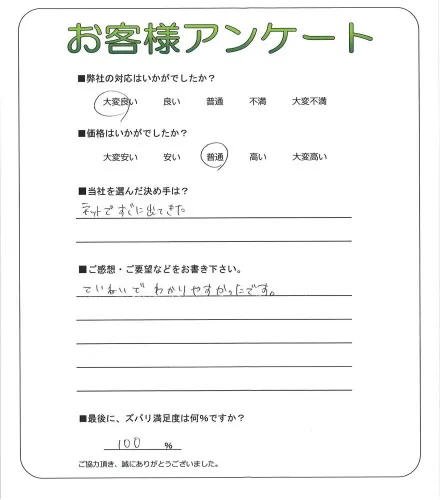 お客様アンケート
■弊社の対応はいかがでしたか？
大変良い 良い 普通 不満 大変不満
■価格はいかがでしたか？
大変安い 安い 普通 高い 大変高い
■当社を選んだ決め手は？
ネットですぐに出てきた
■ご感想・ご要望などをお書き下さい。
ていねいでわかりやすかったです。
■最後に、ズバリ満足度は何%ですか？
100 %
ご協力頂き、誠にありがとうございました。